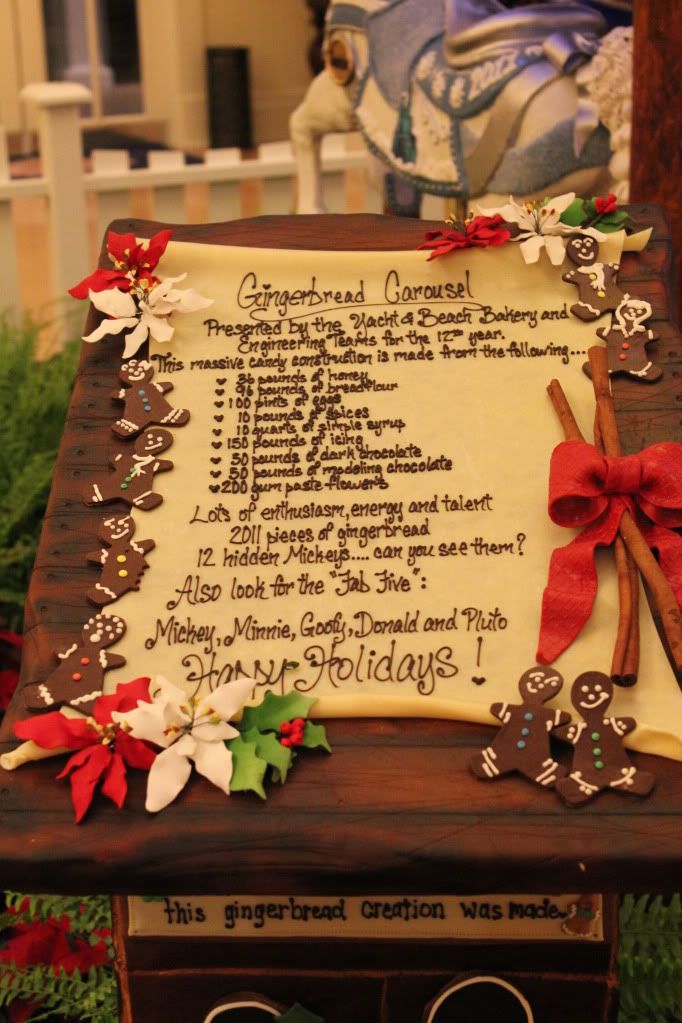 Gingerbread Carousel
Presented by the Yacht & Beach Bakery and
Engineering Teams for the 12th year.
This massive candy construction is made from the following...
♥ 36 pounds of honey
♥ 96 pounds of breadflour
♥ 100 pints of eggs
♥ 10 pounds of spices
♥ 10 quarts of simple syrup
♥ 150 pounds of icing
♥ 50 pounds of dark chocolate
♥ 50 pounds of modeling chocolate
♥ 200 gum paste flowers
Lots of enthusiasm, energy and talent
2011 pieces of gingerbread
12 hidden Mickeys.... can you see them?
Also look for the "Fab Five":
Mickey, Minnie, Goofy, Donald and Pluto
Happy Holidays!
this gingerbread creation was made